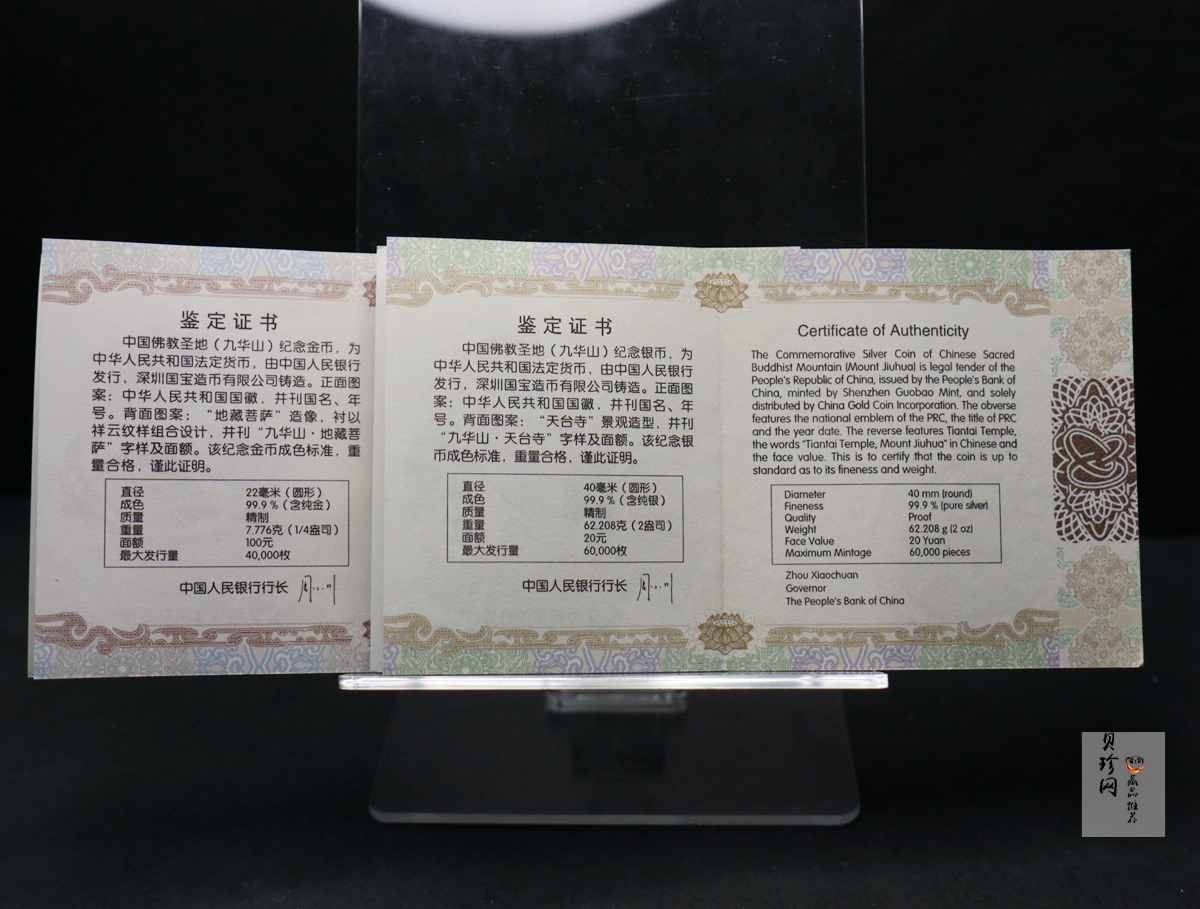 鉴定证书
中国佛教圣地（九华山）纪念金币，为
中华人民共和国法定货币，由中国人民银行
发行，深圳国宝造币有限公司铸造。正面图
案：中华人民共和国国徽，并刊国名、年
号。背面图案：“地藏菩萨”造像，衬以
祥云纹样组合设计，并刊“九华山·地藏菩
萨”字样及面额。该纪念金币成色标准，重
量合格，谨此证明。
直径 22毫米（圆形）
成色 99.9％（含纯金）
质量 精制
重量 7.776克（1/4盎司）
面额 100元
最大发行量 40,000枚
中国人民银行行长
鉴定证书
中国佛教圣地（九华山）纪念银币，为
中华人民共和国法定货币，由中国人民银行
发行，深圳国宝造币有限公司铸造。正面图
案：中华人民共和国国徽，并刊国名、年
号。背面图案：“天台寺”景观造型，并刊
“九华山·天台寺”字样及面额。该纪念银
币成色标准，重量合格，谨此证明。
直径 40毫米（圆形）
成色 99.9％（含纯银）
质量 精制
重量 62.208克（2盎司）
面额 20元
最大发行量 60,000枚
中国人民银行行长
Certificate of Authenticity
The Commemorative Silver Coin of Chinese Sacred
Buddhist Mountain (Mount Jiuhua) is legal tender of the
People's Republic of China, issued by the People's Bank of
China, minted by Shenzhen Guobao Mint, and solely
distributed by China Gold Coin Incorporation. The obverse
features the national emblem of the PRC, the title of PRC
and the year date. The reverse features Tiantai Temple,
the words "Tiantai Temple, Mount Jiuhua" in Chinese and
the face value. This is to certify that the coin is up to
standard as to its fineness and weight.
Diameter 40 mm (round)
Fineness 99.9 % (pure silver)
Quality Proof
Weight 62.208 g (2 oz)
Face Value 20 Yuan
Maximum Mintage 60,000 pieces
Zhou Xiaochuan
Governor
The People's Bank of China
贝珍网
藏品推荐